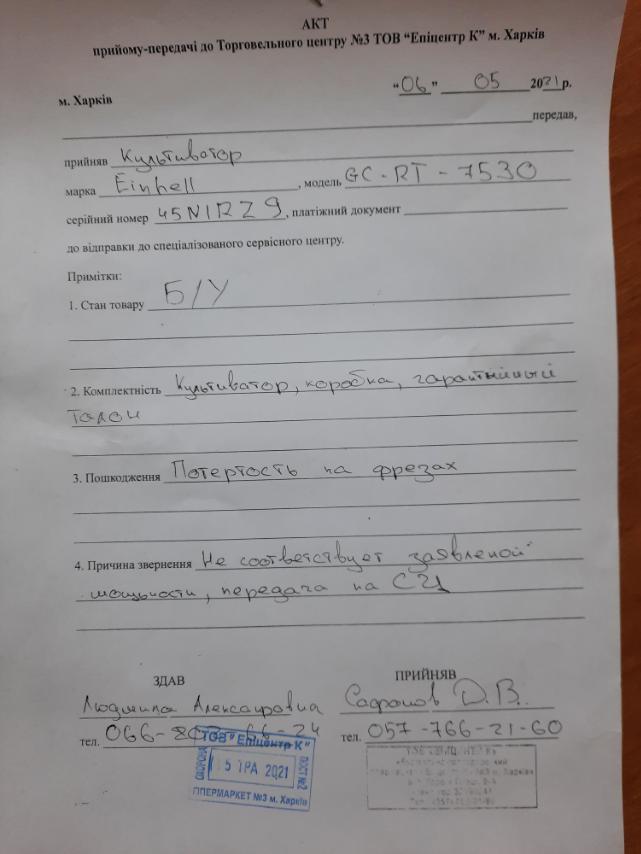 АКТ
прийому-передачі до Торговельного центру №3 ТОВ “Епіцентр К” м. Харків
м. Харків “06” 05 2021р.
передав,
прийняв Культиватор
марка Einhell, модель GC-RT-7530
серійний номер 45N1RZ9, платіжний документ
до відправки до спеціалізованого сервісного центру.
Примітки:
1. Стан товару Б/У
2. Комплектність Культиватор, коробка, гарантийный
талон
3. Пошкодження Потертость на фрезах
4. Причина звернення Не соответствует заявленой
мощьности, передача на СЦ
ЗДАВ ПРИЙНЯВ
Людмила Сафронов Д.В.
тел. 066- -24 тел. 057-766-21-60
ТОВ "Епіцентр К"
ОХОРОНА 15 ТРА 2021 ПОСТ №2
ГІПЕРМАРКЕТ №3 м. Харків